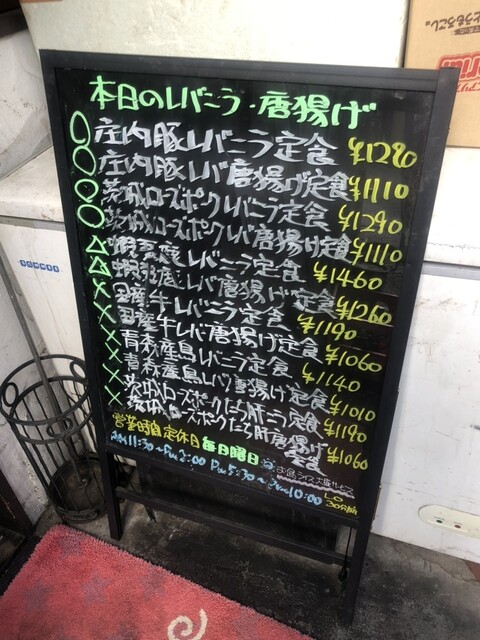 本日のレバニラ・唐揚げ
○ 庄内豚レバニラ定食 ¥1280
○ 庄内豚レバ唐揚げ定食 ¥1110
○ 茨城ローズポークレバニラ定食 ¥1290
○ 茨城ローズポークレバ唐揚げ定食 ¥1110
△ 蝦夷鹿レバニラ定食 ¥1460
△ 蝦夷鹿レバ唐揚げ定食 ¥1260
× 国産牛レバニラ定食 ¥1190
× 国産牛レバ唐揚げ定食 ¥1060
× 青森産鳥レバニラ定食 ¥1140
× 青森産鳥レバ唐揚げ定食 ¥1010
× 茨城ローズポークたち肝ニラ定食 ¥1190
× 茨城ローズポークたち肝唐揚げ定食 ¥1060
営業時間 定休日 毎日曜日
AM11:30~PM2:00 PM5:30~PM10:00
L.O 30分前